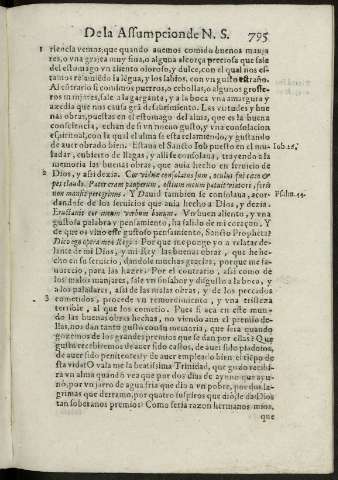 De la Assumpcion de N. S. 795
1 riencia vemos, que quando auemos comido buenos manja
res, o vna grajea muy fina, o alguna alcorça preciosa que sale
del estomago vn aliento oloroso, y dulce, con el qual nos es-
tamos relamiẽdo la lẽgua, y los labios, con vn gusto estraño.
Al cõtrario si comimos puerros, o cebollas, o algunos grosse-
ros manjares, sale a la garganta, y a la boca vna amargura y
azedia que nos causa grã desabrimiento. Las virtudes y bue
nas obras, puestas en el estomago del alma, que es la buena
consciencia, echan de si vn nueuo gusto, y vna consolacion
espiritual, con la qual el alma se esta relamiendo, y gustando
de auer obrado bien. Estaua el Sancto Iob puesto en su mu- Iob. 26.
ladar, cubierto de llagas, y alli se consolaua, trayendo a la
memoria las buenas obras, que auia hecho en seruicio de
2 Dios, y assi dezia. Cor viduæ consolatus sum, oculus fui cæco &
pes claudo. Pater eram pauperum, ostium meum patuit viatori, foris
non mansit peregrinus. Y Dauid tambien se consolaua, acor Psalm. 44.
dandose de los seruicios que auia hecho a Dios, y dezia.
Eructauit cor meum verbum bonum. Vn buen aliento, y vna
gustosa palabra, y pensamiento, ha salido de mi coraçon. Y
de que os vino esse gustoso pensamiento, Sancto Propheta?
Dico ego opera mea Regi: Por que me pongo yo a relatar de-
lante de mi Dios, y mi Rey las buenas obras, que he he-
cho en su seruicio, dandole muchas gracias, porque me fa-
uorecio, para las hazer. Por el contrario, assi como de
los malos manjares, sale vn sinsabor y disgusto a la boca, y
a los paladares, assi de las malas obras, y de los peccados
3 cometidos, procede vn remordimiento, y vna tristeza
terrible, al que los cometio. Pues si aca en este mun-
do las buenas obras hechas, no viendo aun el premio de-
llas, nos dan tanto gusto con su memoria, que sera quando
gozemos de los grandes premios que se dan por ellas? Que
gusto recibiremos de auer sido castos, de auer sido piadosos,
de auer sido penitentes y de auer empleado bien el tiẽpo de
esta vida? O valame la beatissima Trinidad, que gozo recibi
rà vn alma quando vea que por dos dias de ayuno que ayu-
nò, por vn jarro de agua fria que dio a vn pobre, por dos la-
grimas que derramo, por quatro suspiros que diò, le da Dios
tan soberanos premios? Como seria razon hermanos mios,
que